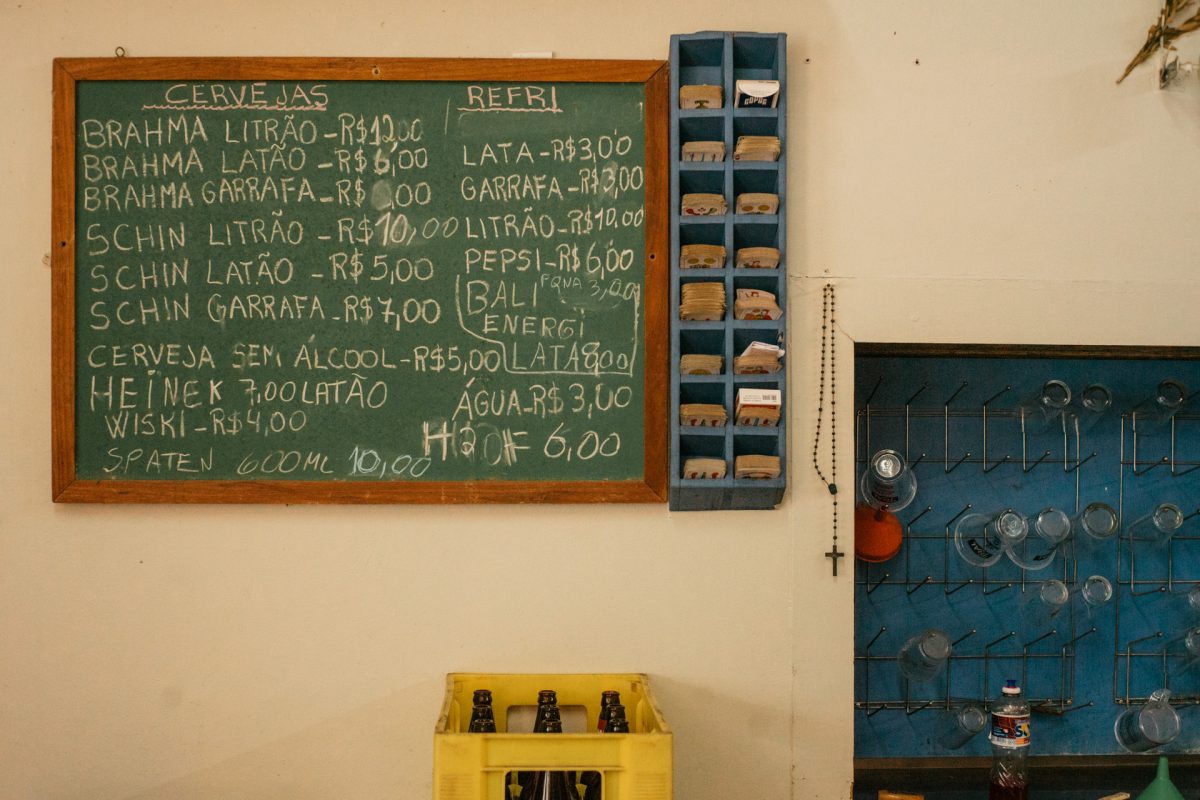 CERVEJAS
BRAHMA LITRÃO - R$12,00
BRAHMA LATÃO - R$6,00
BRAHMA GARRAFA - R$ ,00
SCHIN LITRÃO - R$10,00
SCHIN LATÃO - R$5,00
SCHIN GARRAFA - R$7,00
CERVEJA SEM ÁLCOOL - R$5,00
HEINEK 7,00 LATÃO
WISKI - R$4,00
SPATEN 600ML 10,00
REFRI
LATA - R$3,00
GARRAFA - R$3,00
LITRÃO - R$10,00
PEPSI - R$6,00
PQNA 3,00
BALI
ENERGI
LATA 8,00
ÁGUA - R$3,00
6,00
COPAG